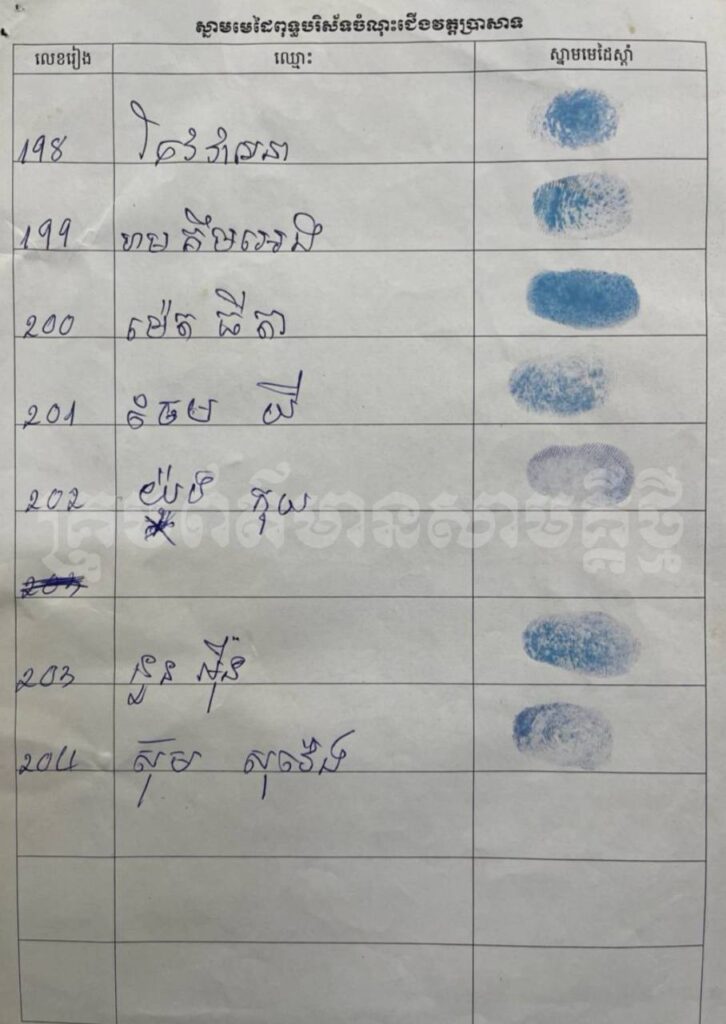 ស្នាមមេដៃពុទ្ធបរិស័ទចំណុះជើងវត្តប្រាសាទ
លេខរៀង ឈ្មោះ ស្នាមមេដៃស្តាំ
198
199 ហម គឹមអេង
200 ម៉េត ធីតា
201 ចែម យី
202 យ៉ូង កុយ
203
203 នួន អ៊ីន
204 ស៊ុម សុវ៉េង
ក្រុមព័ត៌មានសាមគ្គីថ្មី